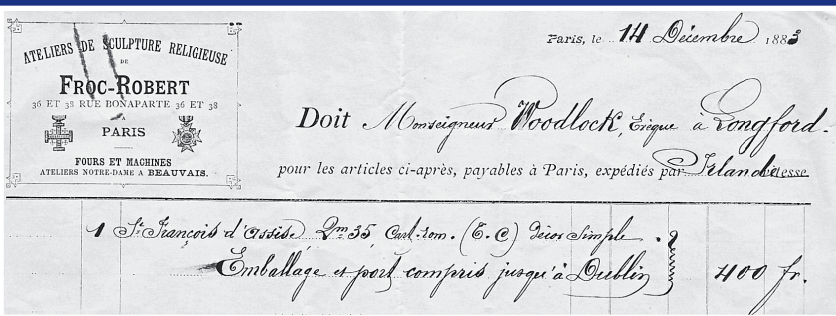 ATELIERS DE SCULPTURE RELIGIEUSE
DE
FROC-ROBERT
36 ET 38 RUE BONAPARTE 36 ET 38
A
PARIS
FOURS ET MACHINES
ATELIERS NOTRE-DAME A BEAUVAIS.
Paris, le 14 Décembre 1883
Doit Monseigneur Woodlock, Evêque à Longford-
pour les articles ci-après, payables à Paris, expédiés par Irlande
1 St François d'Assise 2m35, Cart-rom. (E. C) décor Simple.
Emballage et port compris jusqu'à Dublin 400 fr.